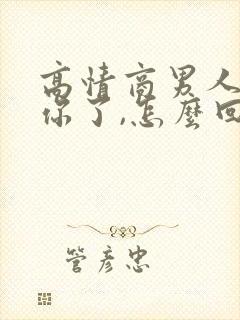 高情商男人
你了,怎麼回
管彦忠